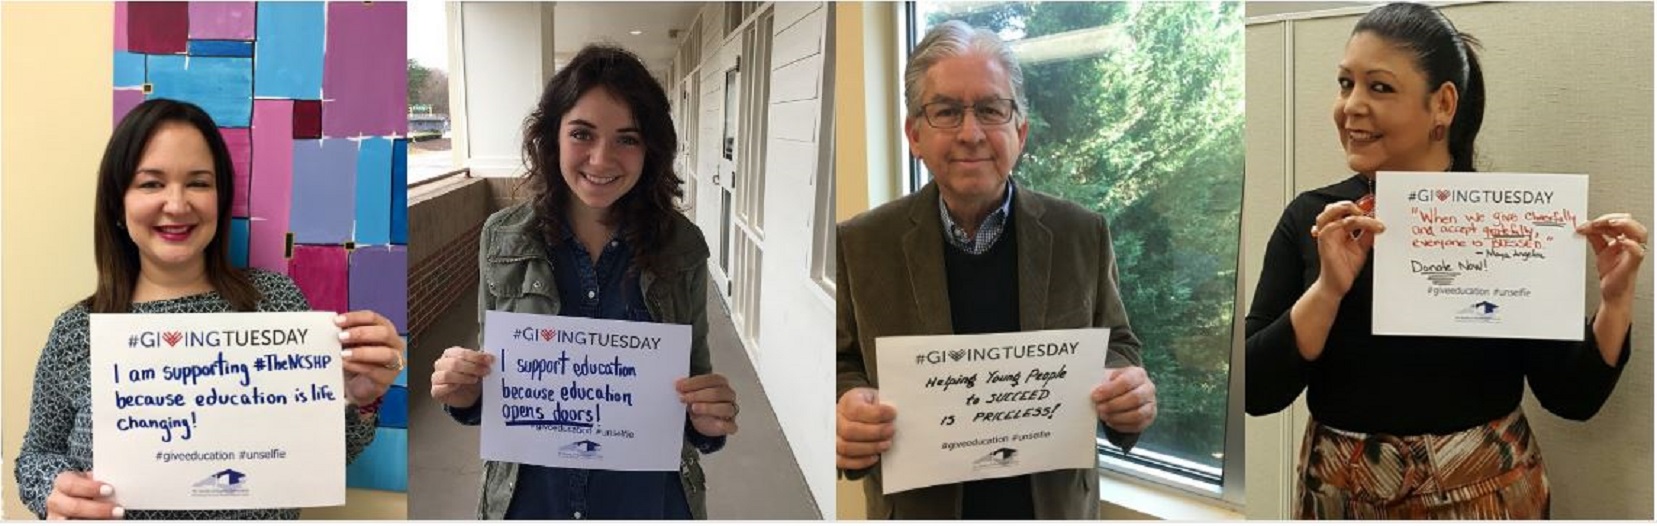 #GIVINGTUESDAY
I am supporting #TheNCSHP
because education is life
changing!
#giveeducation #unselfie
#GIVINGTUESDAY
I support education
because education
opens doors!
#giveeducation #unselfie
#GIVINGTUESDAY
Helping Young People
to SUCCEED
IS PRICELESS!
#giveeducation #unselfie
#GIVINGTUESDAY
"When we give cheerfully
and accept gratefully,
everyone is BLESSED."
- Maya Angelou
Donate Now!
#giveeducation #unselfie